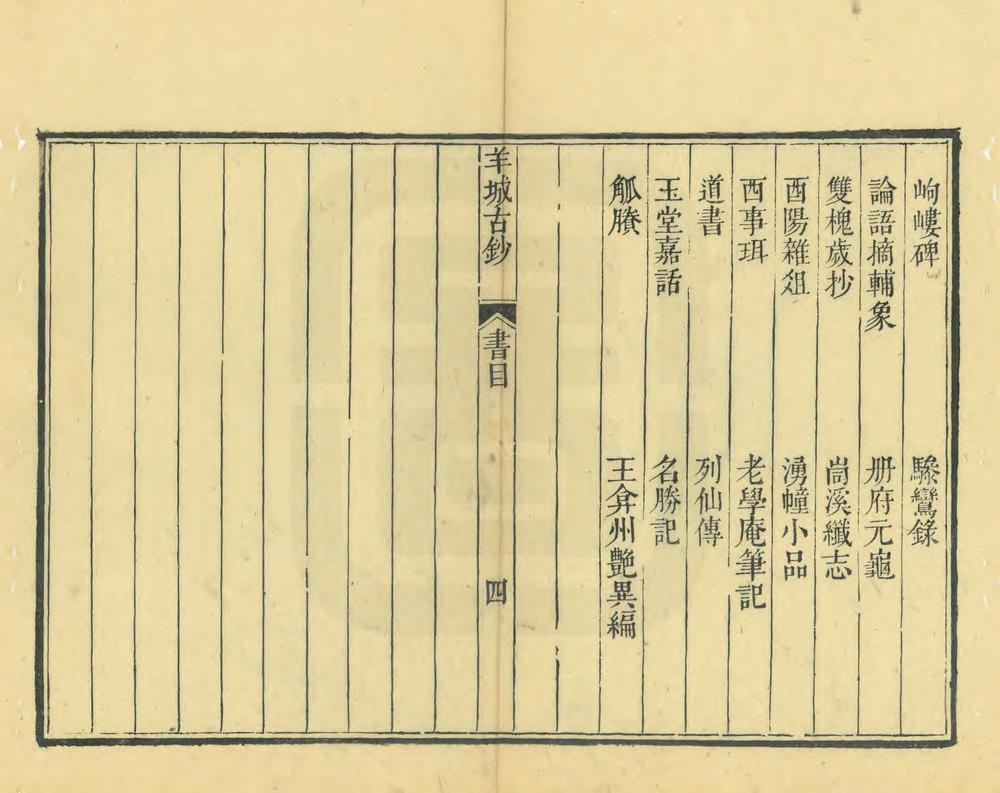 岣嶁碑　驂鸞錄
論語摘輔象　册府元龜
雙槐歲抄　峝溪纖志
酉陽雜俎　湧幢小品
西事珥　老學庵筆記
道書　列仙傳
玉堂嘉話　名勝記
觚賸　王弇州艷異編
羊城古鈔　書目　四